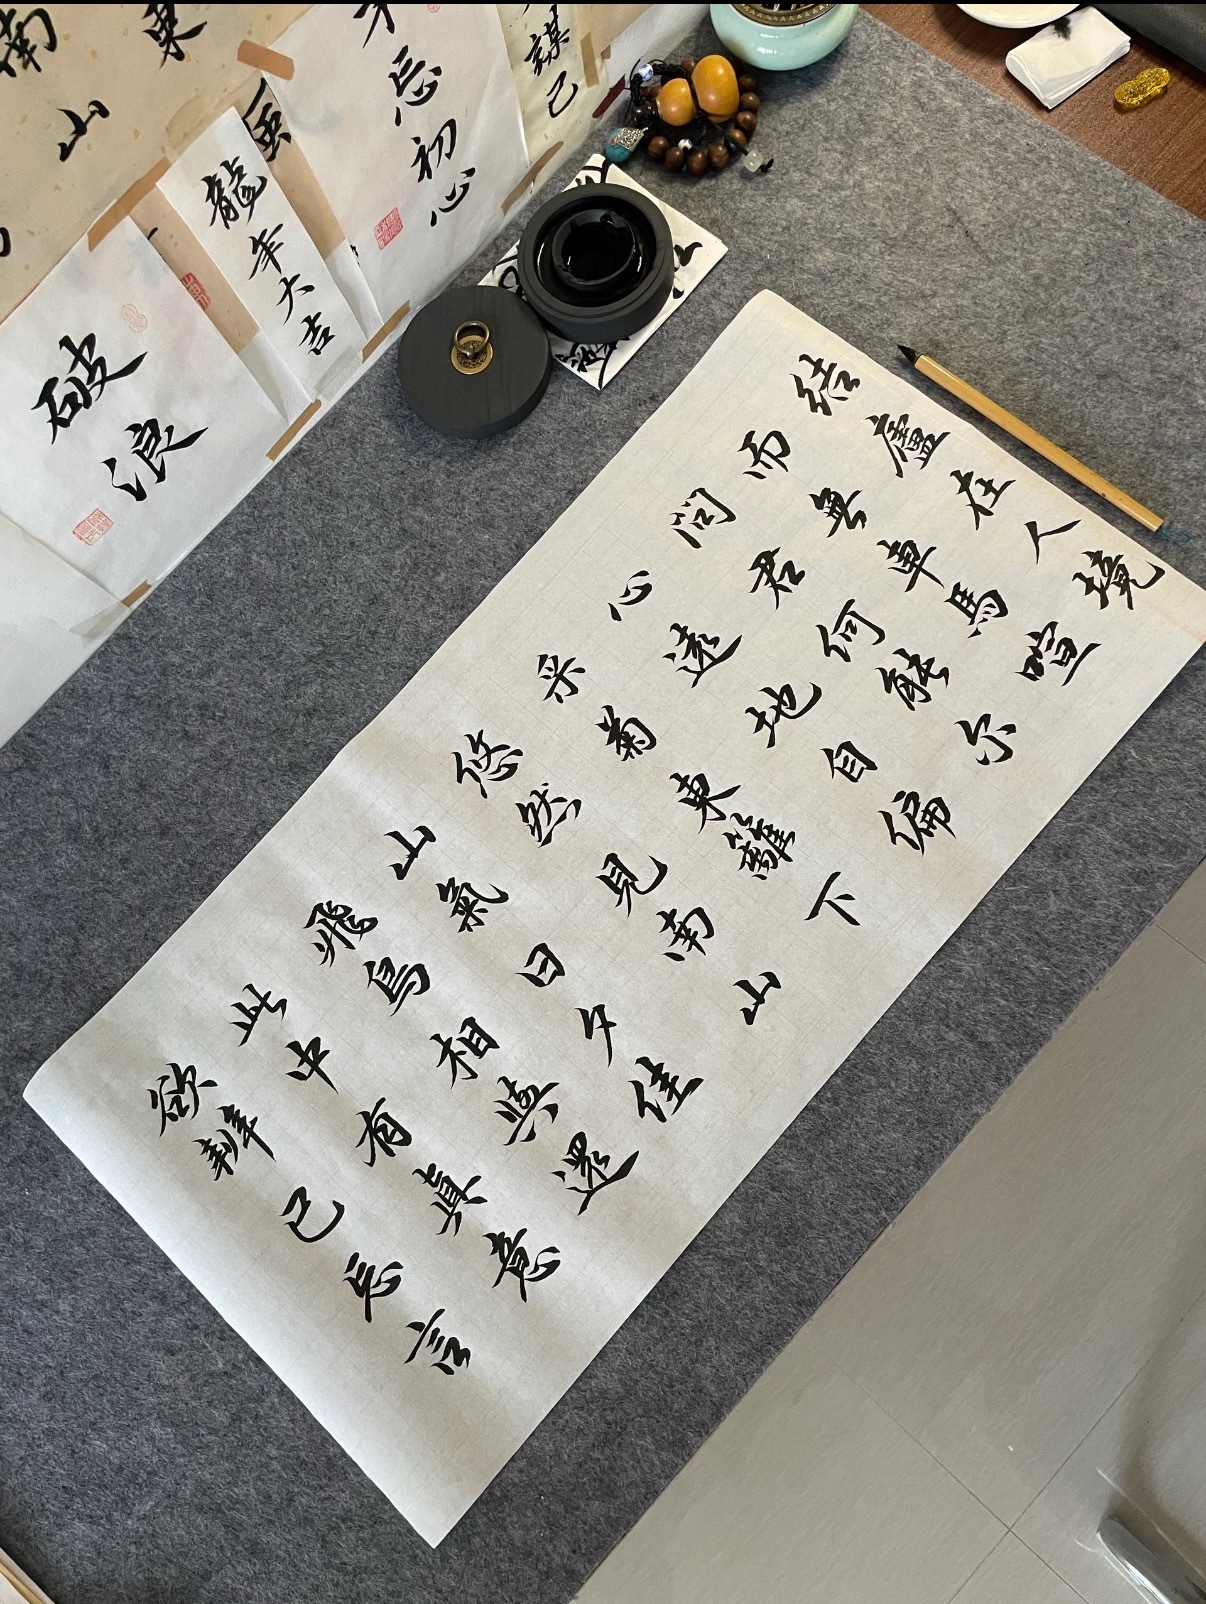 結廬在人境
而無車馬喧
问君何能尔
心遠地自偏
采菊東籬下
悠然見南山
山氣日夕佳
飛鳥相與還
此中有真意
欲辨已忘言
南山
東
忘初心
謀己
龍年大吉
破浪